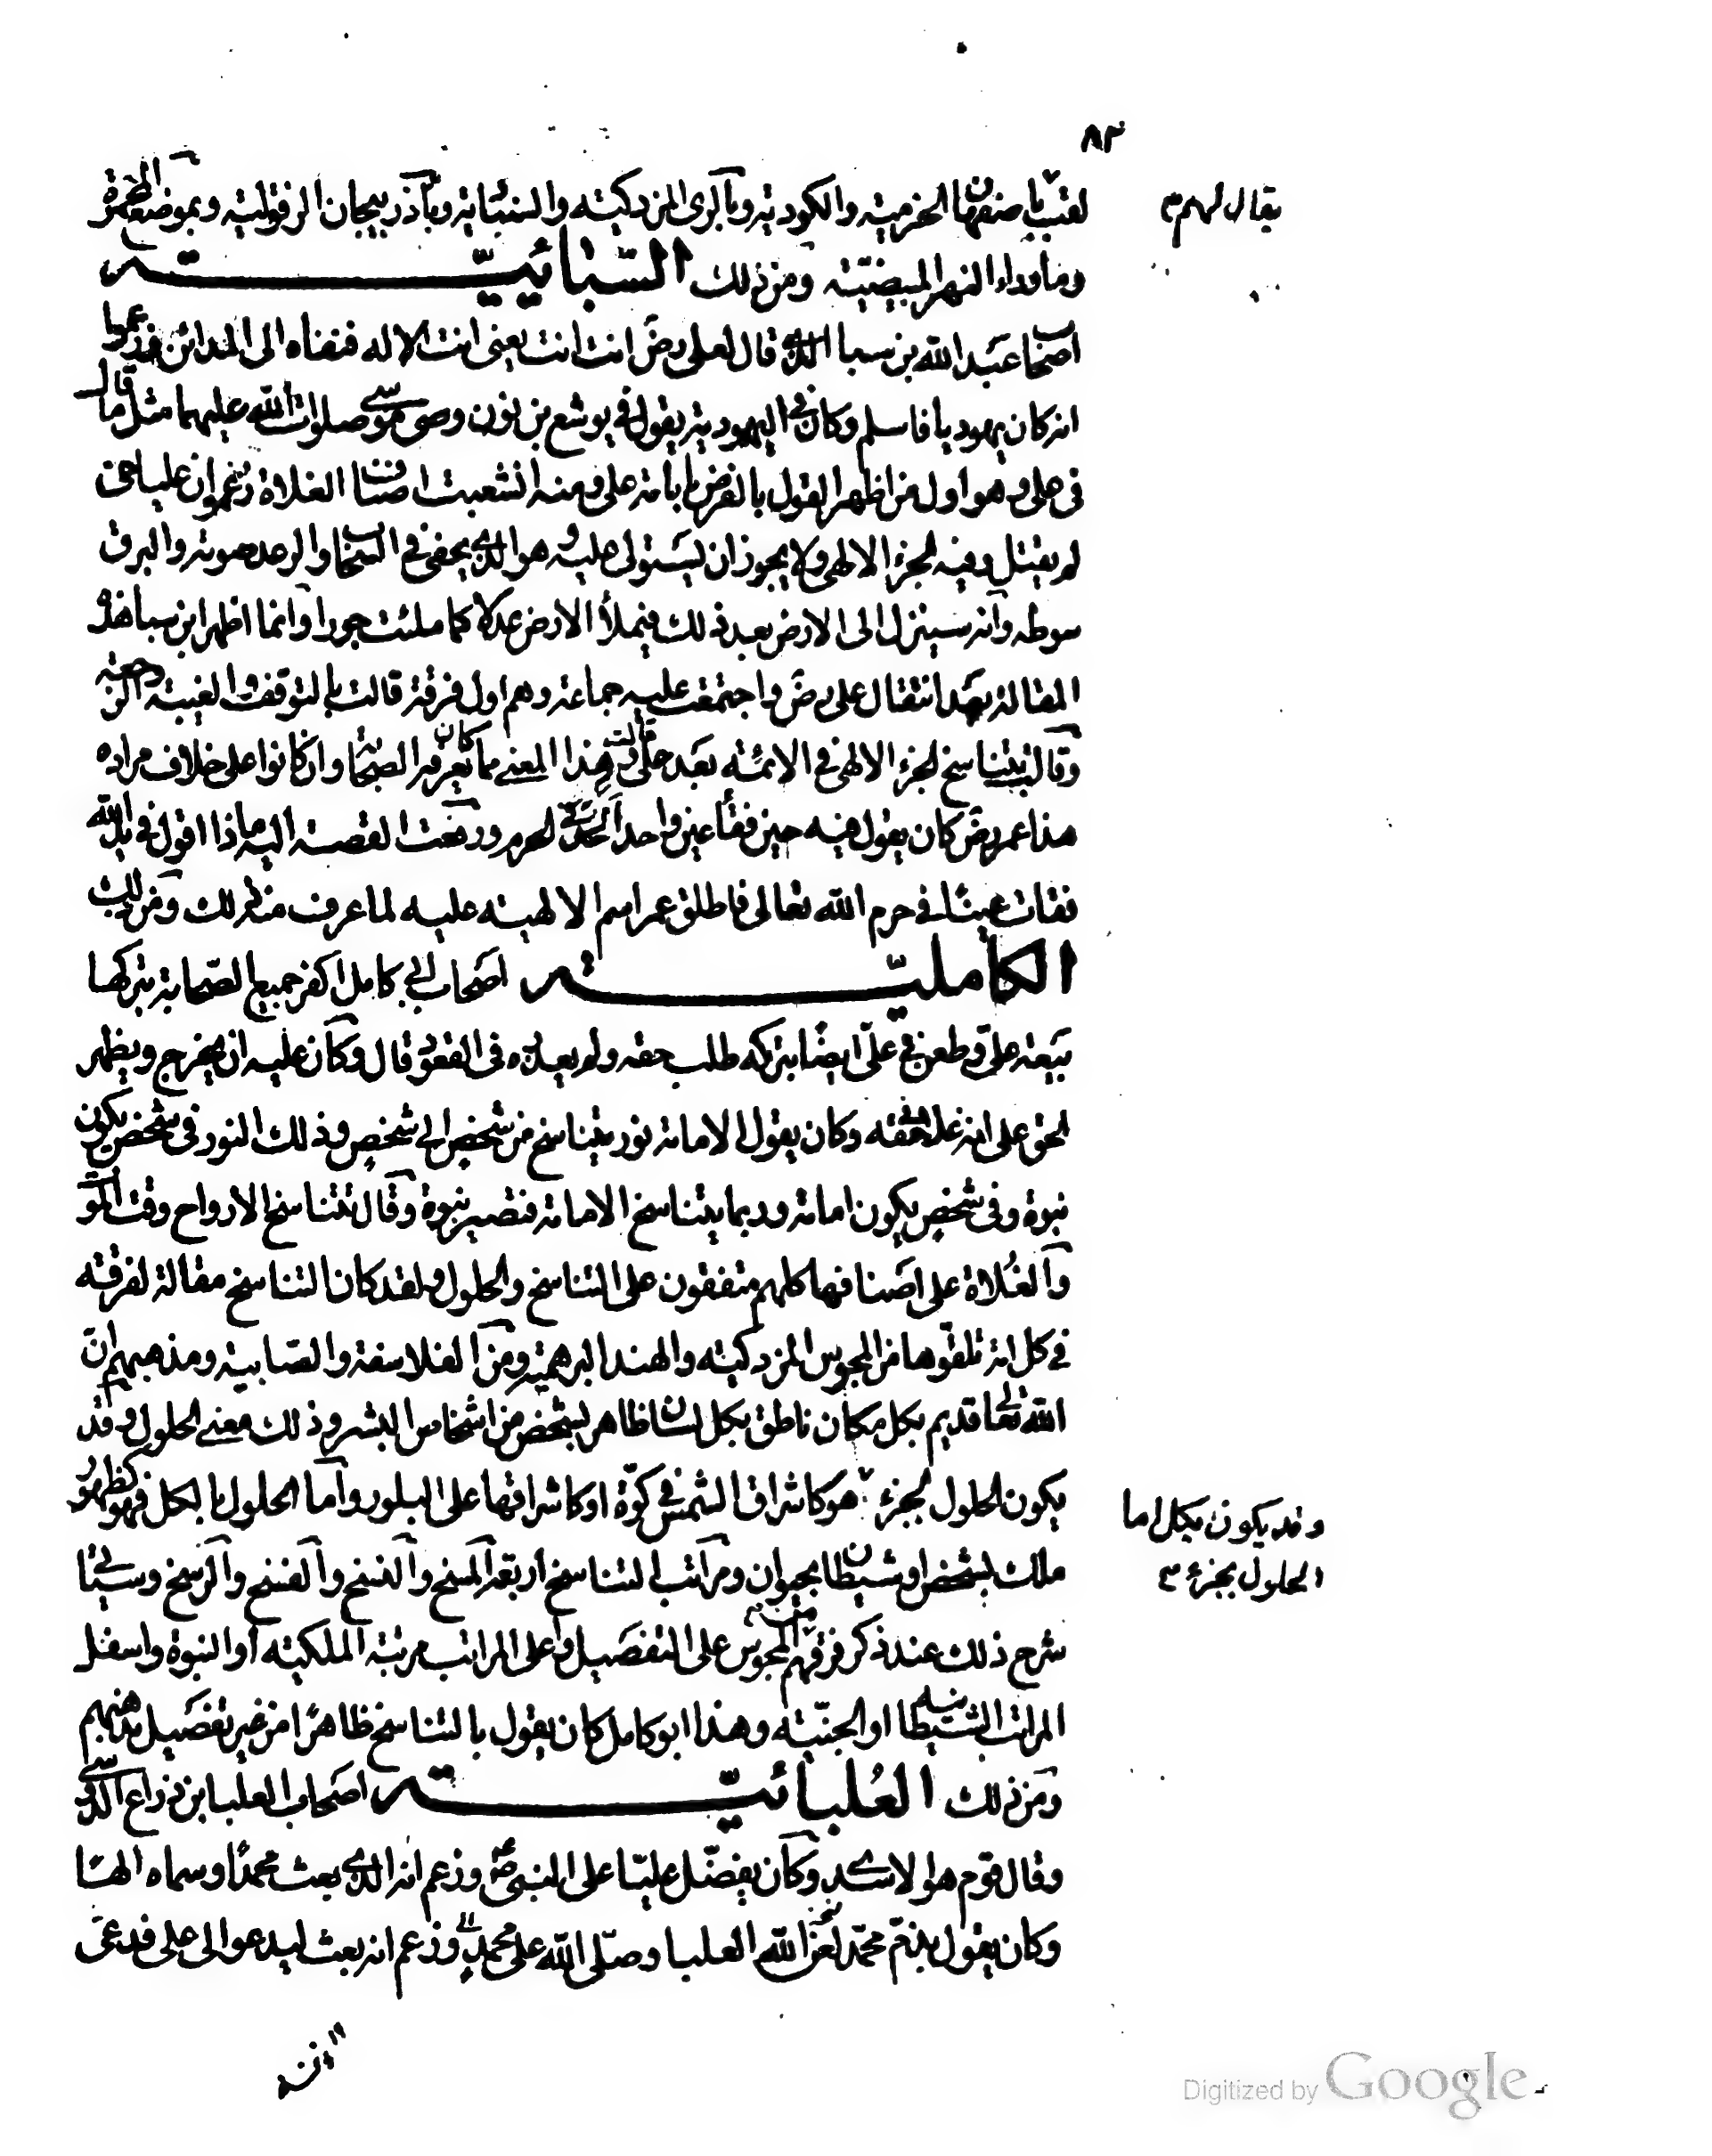 ٨٣
لقب باصفهان الخرمية والكودية وبالرى المزدكية والسنبائية وبآذربيجان الزقولية وبموضع المحمرة
يقال لهم
وما وراء النهر المبيضية ومن ذلك السبائية
اصحاب عبد الله بن سبا الذى قال لعلى رض انت انت يعنى انت الاله فنفاه الى المدائن وزعموا
انه كان يهوديا فاسلم وكان فى اليهودية يقول فى يوشع بن نون وصى موسى صلوات الله عليهما مثل ما قال
فى على وهو اول من اظهر القول بالفرض بامامة على ومنه انشعبت اصناف الغلاة وزعموا ان عليا حى
لم يقتل وفيه الجزء الالهى ولا يجوز ان يستولى عليه وهو الذى يجئ فى السحاب والرعد صوته والبرق
سوطه وانه سينزل الى الارض بعد ذلك فيملأ الارض عدلا كما ملئت جورا وانما اظهر ابن سبا هذه
المقالة بعد انتقال على رض واجتمعت عليه جماعة وهم اول فرقة قالت بالتوقف والغيبة والرجعة
وقالت بتناسخ الجزء الالهى فى الائمة بعد على قالت وهذا المعنى مما كان يعرفه الصحابة وان كانوا على خلاف مراده
هذا عمر رض كان يقول فيه حين فقأ عين واحد فى الحرم ورفعت القصة اليه ماذا اقول فى يد الله
فقات عينا فى حرم الله تعالى فاطلق عمر اسم الالهية عليه لما عرف منه ذلك ومن ذلك
الكاملية اصحاب ابى كامل اكفر جميع الصحابة بتركها
بيعة على وطعن فى على ايضا بتركه طلب حقه ولم يعذره فى القعود قال وكان عليه ان يخرج ويظهر
الحق على انه غلا فى حقه وكان يقول الامامة نور يتناسخ من شخص الى شخص وذلك النور فى شخص يكون
نبوة وفى شخص يكون امامة وربما يتناسخ الامامة فتصير نبوة وقال تتناسخ الارواح وقت الموت
والغلاة على اصنافها كلهم متفقون على التناسخ والحلول ولقد كان التناسخ مقالة لفرقة
فى كل امة تلقوها من المجوس المزدكية والهند البرهمية ومن الفلاسفة والصابية ومذهبهم ان
الله تعالى قديم بكل مكان ناطق بكل لسان ظاهر بشخص من اشخاص البشر وذلك معنى الحلول وقد
يكون الحلول بجزء هو كاشراق الشمس فى كوة او كاشراقها على البلور واما الحلول بالكل فهو كظهور
وقد يكون بكل اما
الحلول بجزء
ملك بشخص او شيطان بحيوان ومراتب التناسخ اربعة المسخ والنسخ والفسخ والرسخ وسيأتى
شرح ذلك عند ذكر فرقهم من المجوس على التفصيل واعلى المراتب مرتبة الملكية او النبوة واسفل
المراتب الشيطانية او الجنية وهذا ابو كامل كان يقول بالتناسخ ظاهرا من غير تفصيل مذهبهم
ومن ذلك العلبائية اصحاب العلبا بن ذراع الدوسى
وقال قوم هو الاسدى وكان يفضل عليا على النبى ص وزعم انه الذى بعث محمدا وسماه الها
وكان يقول بذم محمد لعن الله العلبا وصلى الله على محمد وآله وزعم انه بعث ليدعو الى على فدعى